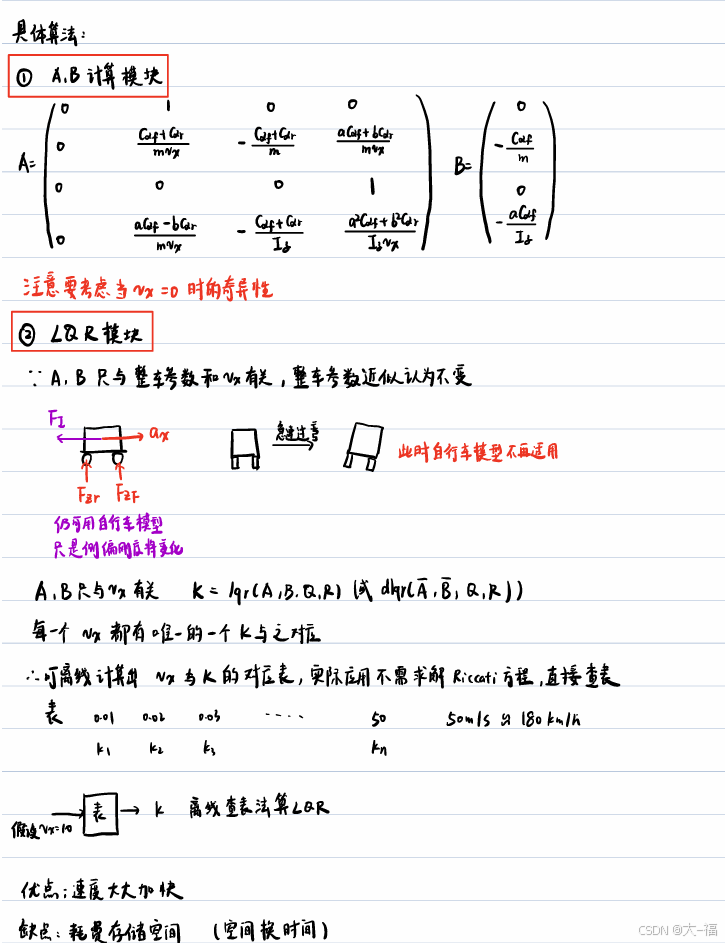 具体算法:
① A,B 计算模块
A= ( 0 1 0 0
0 (Cαf+Cαr)/(mvx) -(Cαf+Cαr)/m (aCαf+bCαr)/(mvx)
0 0 0 1
0 (aCαf-bCαr)/(mvx) -(Cαf+Cαr)/Iz (a²Cαf+b²Cαr)/(Izvx) )
B= ( 0
-Cαf/m
0
-aCαf/Iz )
注意要考虑当 vx=0 时的奇异性
② LQR 模块
∵ A,B 只与整车参数和 vx 有关, 整车参数近似认为不变
FI ax
Fzr Fzf
仍可用自行车模型
只是侧偏刚度将变化
急速过弯
此时自行车模型不再适用
A,B只与vx有关 K=lqr(A,B,Q,R) (或 dlqr(A̅,B̅,Q,R))
每一个 vx 都有唯一的一个 K与之对应
∴可离线计算出 vx 与 K 的对应表, 实际应用不需求解 Riccati 方程, 直接查表
表 0.01 0.02 0.03 ···· 50 50m/s ≈ 180km/h
k1 k2 k3 kn
假设vx=10 → 表 → K 离线查表法算LQR
优点: 速度大大加快
缺点: 耗费存储空间 (空间换时间)
CSDN @大-福